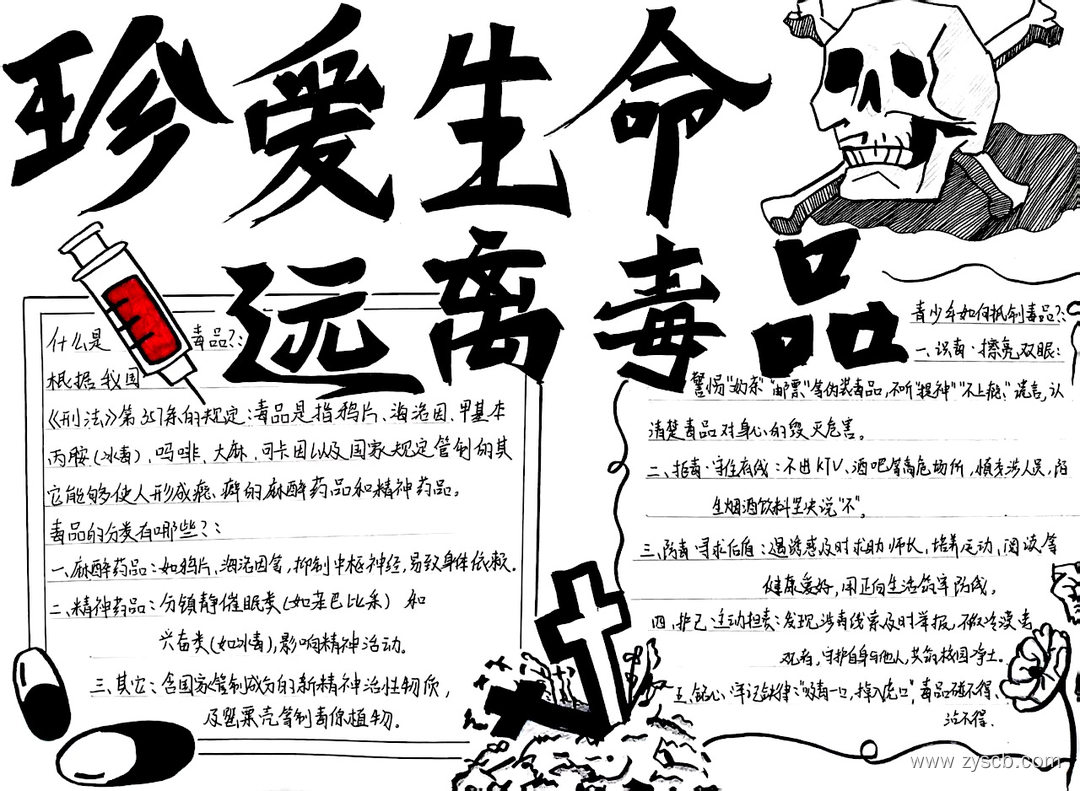 珍爱生命
远离毒品
什么是毒品?:
根据我国
《刑法》第357条的规定:毒品是指鸦片、海洛因、甲基苯
丙胺(冰毒)、吗啡、大麻、可卡因以及国家规定管制的其
它能够使人形成瘾癖的麻醉药品和精神药品。
毒品的分类有哪些?:
一、麻醉药品:如鸦片、海洛因等,抑制中枢神经,易致身体依赖。
二、精神药品:分镇静催眠类(如苯巴比妥)和
兴奋类(如冰毒),影响精神活动。
三、其它:含国家管制成分的新精神活性物质,
及罂粟壳等制毒原植物。
青少年如何抵制毒品?:
一、识毒·擦亮双眼:
警惕“奶茶”“邮票”等伪装毒品,不听“提神”“不上瘾”谎言,认
清楚毒品对身心的毁灭危害。
二、拒毒·守住底线:不进KTV、酒吧等高危场所,慎交涉人员,陌
生烟酒饮料坚决说“不”。
三、防毒·寻求后盾:遇诱惑及时求助师长,培养运动、阅读等
健康爱好,用正向生活筑牢防线。
四、护己·主动担责:发现涉毒线索及时举报,不做冷漠旁
观者,守护自身与他人,共筑校园净土。
五、铭心·牢记铁律:“吸毒一口,掉入虎口”,毒品碰不得、
沾不得。
www.zyscb.com